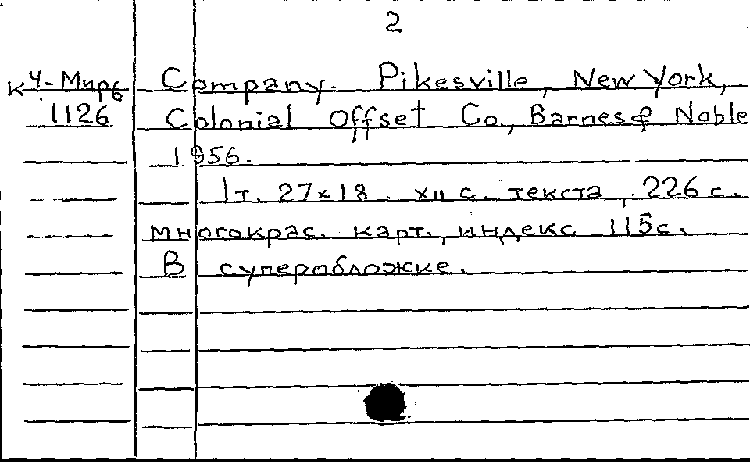 2
К 4-Мирв Company. Pikesville, New York,
1126 Colonial Offset Co., Barnes & Noble
1956.
1т. 27×18. XII с. текста, 226 с.
многокрас. карт., индекс 115с.
В суперобложке.